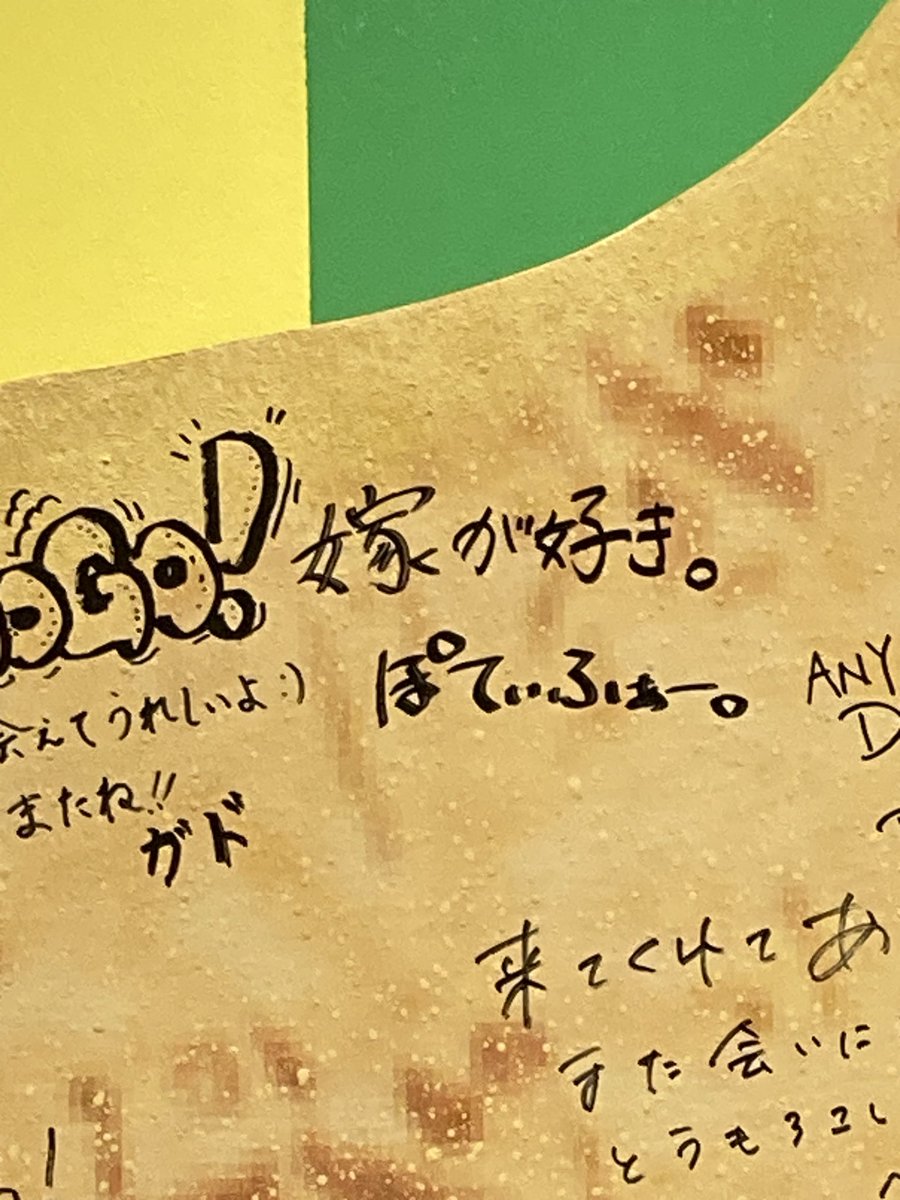 OGO!
嫁が好き。
ぽてぃふぁー。
会えてうれしいよ:)
またね!!
ガド
ANY
D
来てくれてあ
また会いに
とうもろこし